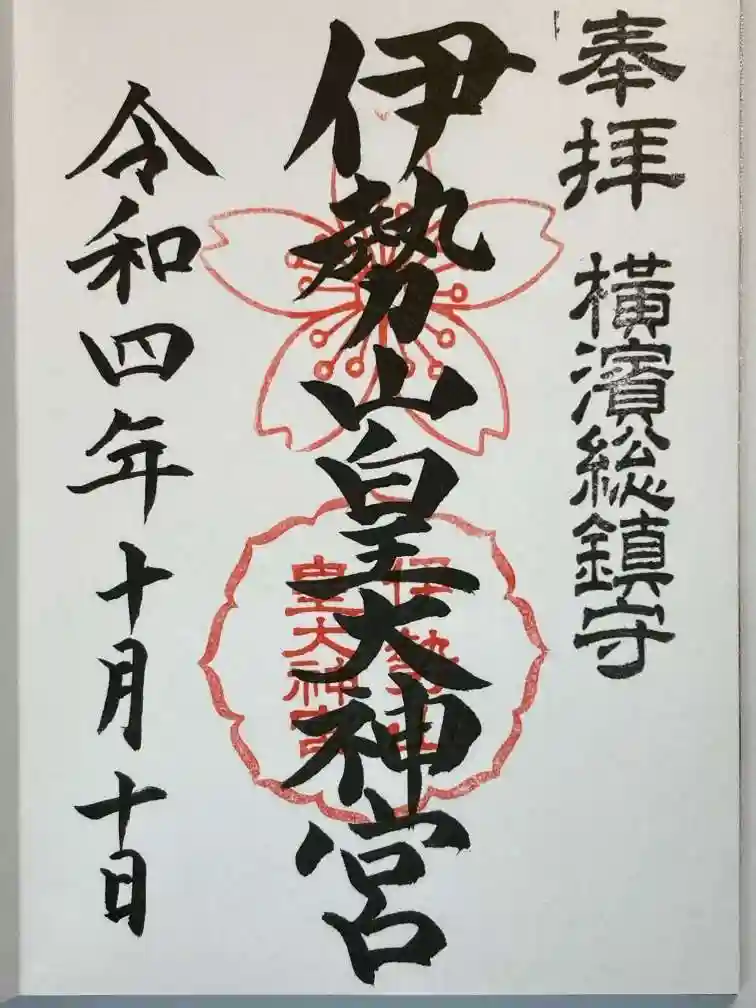 奉拝
横濱総鎮守
伊勢山皇大神宮
伊勢山
皇大神宮
令和四年十月十日